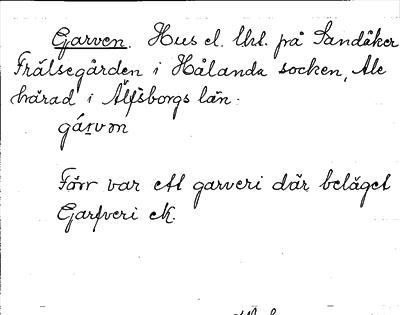 Garven. Hus el. lhl. på Sandåker
Frälsegården i Hålanda socken, Ale
härad i Älfsborgs län:
gárvən
Förr var ett garveri där beläget
Garfveri ek.